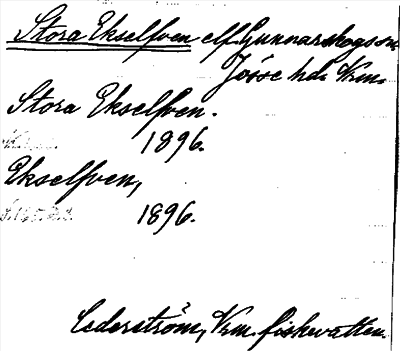 Stora Ekselfven elf Gunnarskogs sn
Jösse hd. Vrm.
Stora Ekselfven.
1896.
Ekselfven,
1896.
Cederström, Vrm. fiskvatten.